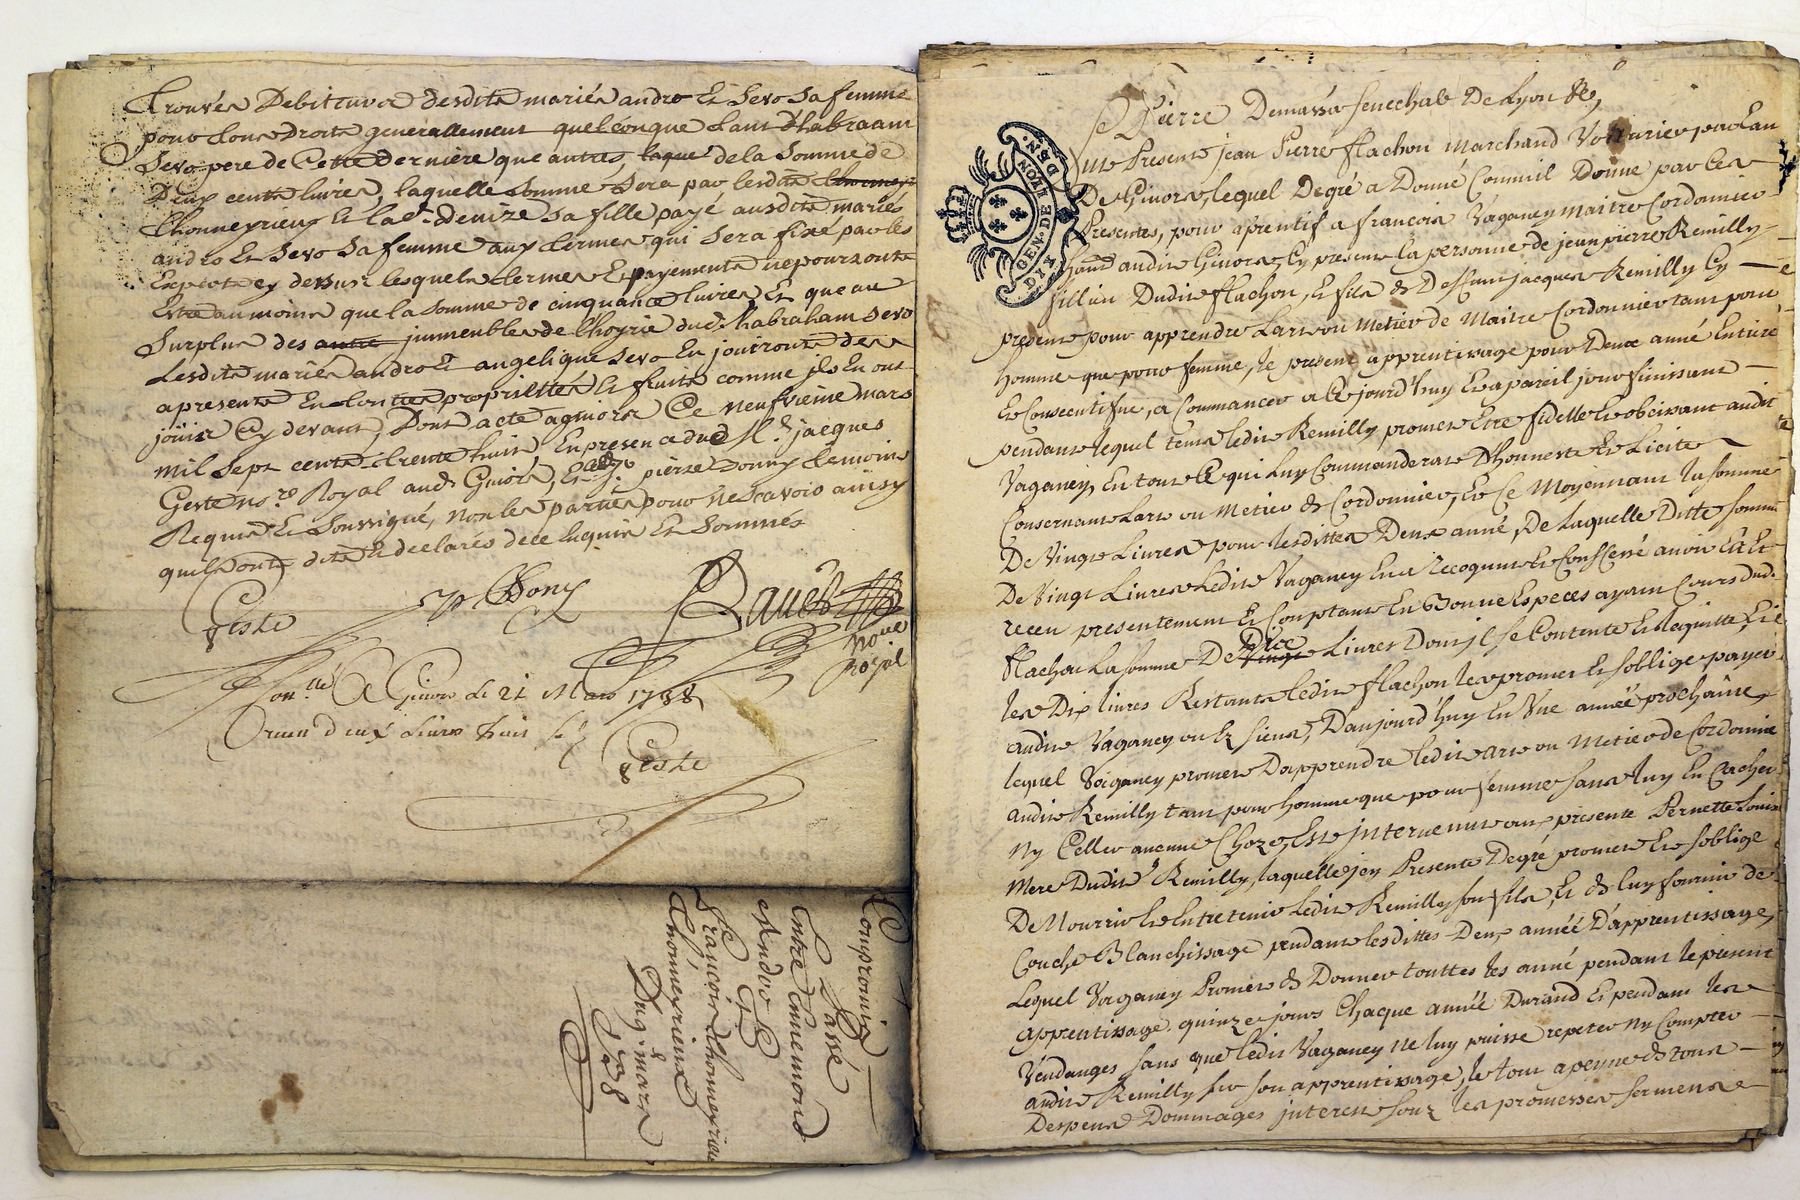 trouvés Debiteurs desdits mariés andro Et Sevo Sa femme
pour tous Droits generallement quelconque tant Dhabraam
Sevo pere de Cette derniere que autres, laqué dela Somme de
Deux cents livres, laquelle Somme Sera par lesdits
thonneyrieux Et lad. denize Sa fille payé ausdits mariés
andro Et Sevo Sa femme aux termes qui Sera fixé par les
Experts cy dessus lesquels termes Et payements nepourronts
Estre aumoins que la Somme de cinquante livres Et que au
Surplus des autre jmmeubles de Lhoyrie dud. habraham Sevo
Lesdits mariés andro Et angelique Sevo En jouironts des a
apresents En toutes proprieties Et fruits comme jls En ont
jouir Cy devant, Dont acte agivors Ce neufvieme mars
mil Sept cents trente huit, En presence dud. Me. jacques
Geste nore. Royal aud. Givors, Et Sr. pierre Donny temoins
Requis Et Soussigné, non les parties pour ne Scavoir ainsy
quils onts dits Et declarés dece Enquis Et Sommés
Geste P Dony
noire
Royal
Con.llé A Givors Le 21 Mars 1738
Receu deux Livres huit s.
Geste
Compromis
Passé
Entre Ennemond
Andro Et
François thonneyrieux
thonneyrieux
Du 9e. mars
1738
Pierre Demassa senechal De Lyon &c,
fut Present jean Pierre flachon Marchand Voiturier par Eau
De Givors, lequel Degré a Donné Comm il Donne par Ces
Presentes, pour aprentif a francois Vaganey maitre Cordonnier
audit Givors, Cy present la personne de jean pierre Remilly
fillieu Dudit flachon, Et fils de Deffunt jacques Remilly Cy
present pour apprendre Lart ou Metier de Maitre Cordonnier tant pour
homme que pour femme, le present apprentissage pour Deux anné Entiere
Et Consecutifve, a Commancer a Cejourd'huy Et apareil jour finissant
pendant lequel tems ledit Remilly promet Etre fidelle Et obeissant audit
Vaganey En tout Ce qui Luy Commanderat Dhonneste Et Licite
Consernant Lart ou Metier de Cordonnier, Et Ce Moyennant la somme
De Vingt Livres pour lesdittes Deux anné, De Laquelle Ditte somme
De Vingt Livres Ledit Vaganey En a Recogneut Et Confessé avoir Eut Et
receu presentement Et Comptant En Bonne Especes ayant Cours dud.
flachon La somme De Vingt Dix Livres Dont jl se Contente Et Laquitte, Et
les Dix livres Restants Ledit flachon les promet Et soblige payer
audit Vaganey ou Ez siens, Daujourd'huy En Une année prochaine,
lequel Vaganey promet Dapprendre ledit art ou Metier de Cordonnie
audit Remilly tant pour homme que pour femme sans Luy En Cacher
Ny Celler aucune Choze, Est jntervenut aux presente Pernette Louis
Mere Dudit Remilly, laquelle jcy Presente Degré promet Et soblige
De Nourrir Et Entretenir Ledit Remilly son fils, Et de Luy fournir de
Couche Blanchissage pendant lesdittes Deux année Dapprentissage,
Lequel Vaganey Promet de Donner touttes les anné pendant le present
apprentissage quinze jours Chaque année Durand Et pendant les
Vendanges sans que ledit Vaganey ne luy puisse repeter ny Compter
audit Remilly sur son apprentissage, le tout a peyne de tous
Despens Dommages jnterest sous les promesses serments